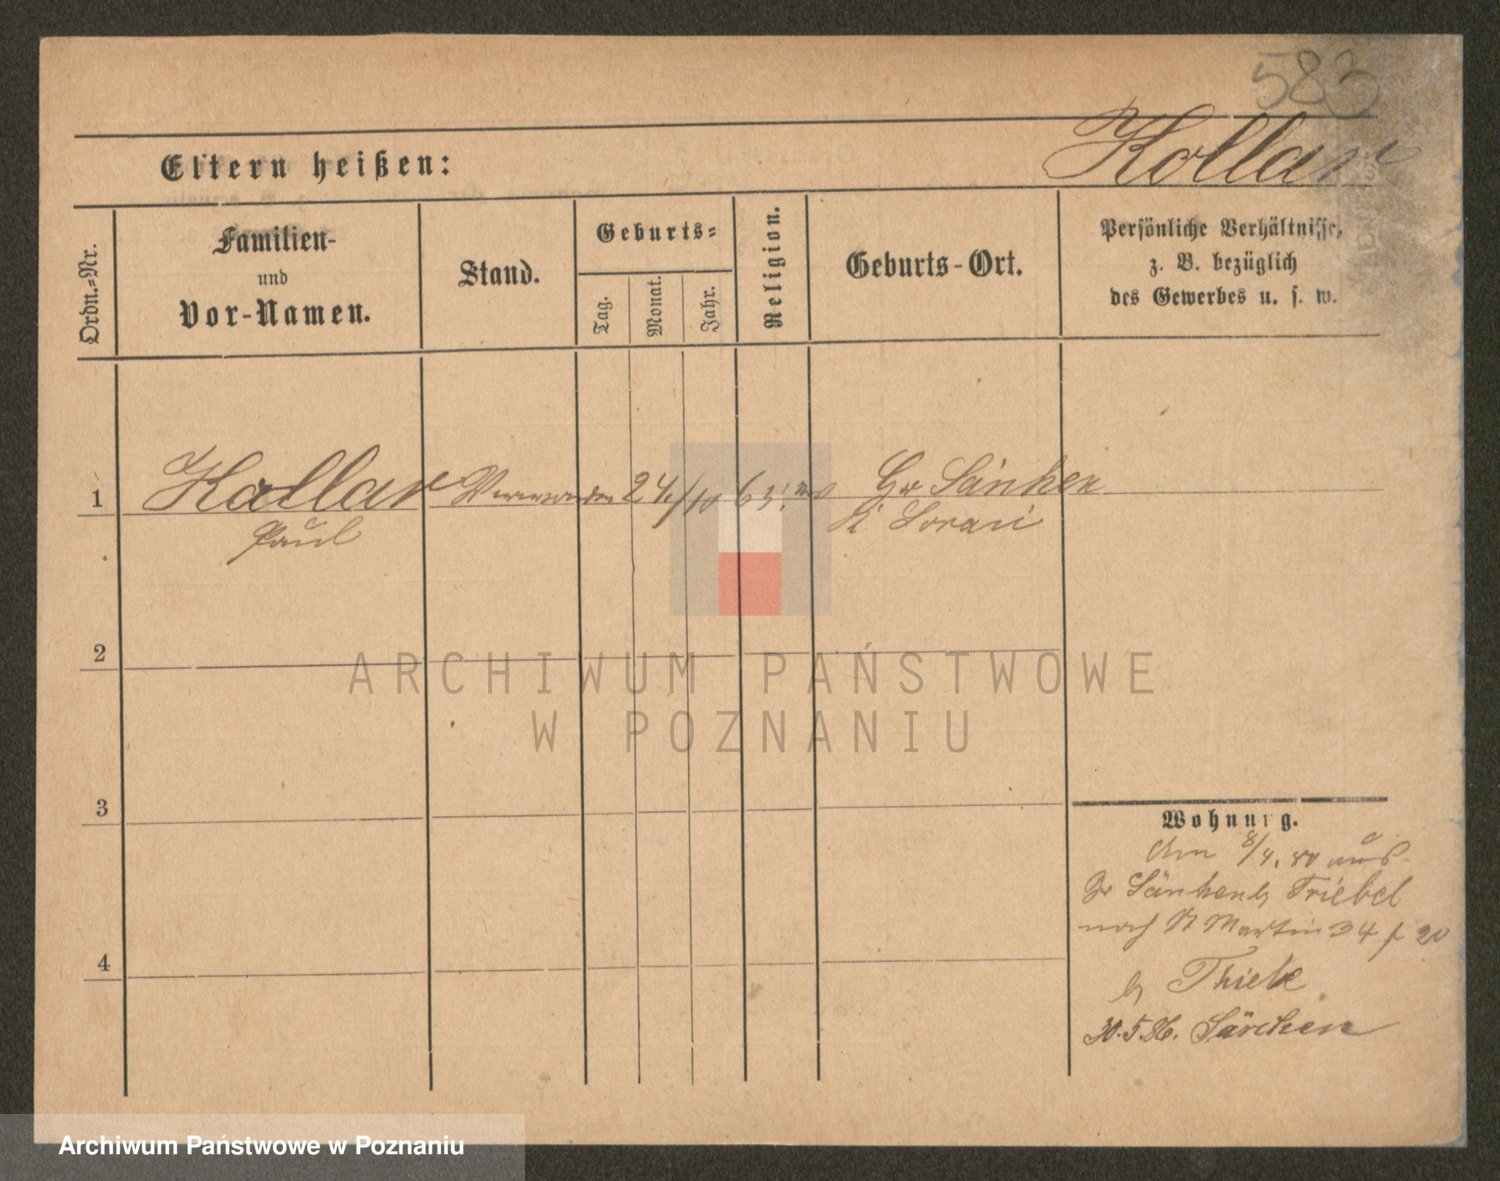 583
Kollar
Eltern heißen:
Ordn.-Nr.
Familien-
und
Vor-Namen.
Stand.
Geburts-
Tag.
Monat.
Jahr.
Religion.
Geburts-Ort.
Persönliche Verhältnisse,
z. B. bezüglich
des Gewerbes u. s. w.
1
Kallar
Paul
24/10 63
Gr Sänken
Sorau
2
3
4
Wohnung.
Am 8/4. aus
Gr Sänken b Triebel
nach St Martin 34
b Thiele
30.5.86. Särchen
ARCHIWUM PAŃSTWOWE
W POZNANIU
Archiwum Państwowe w Poznaniu